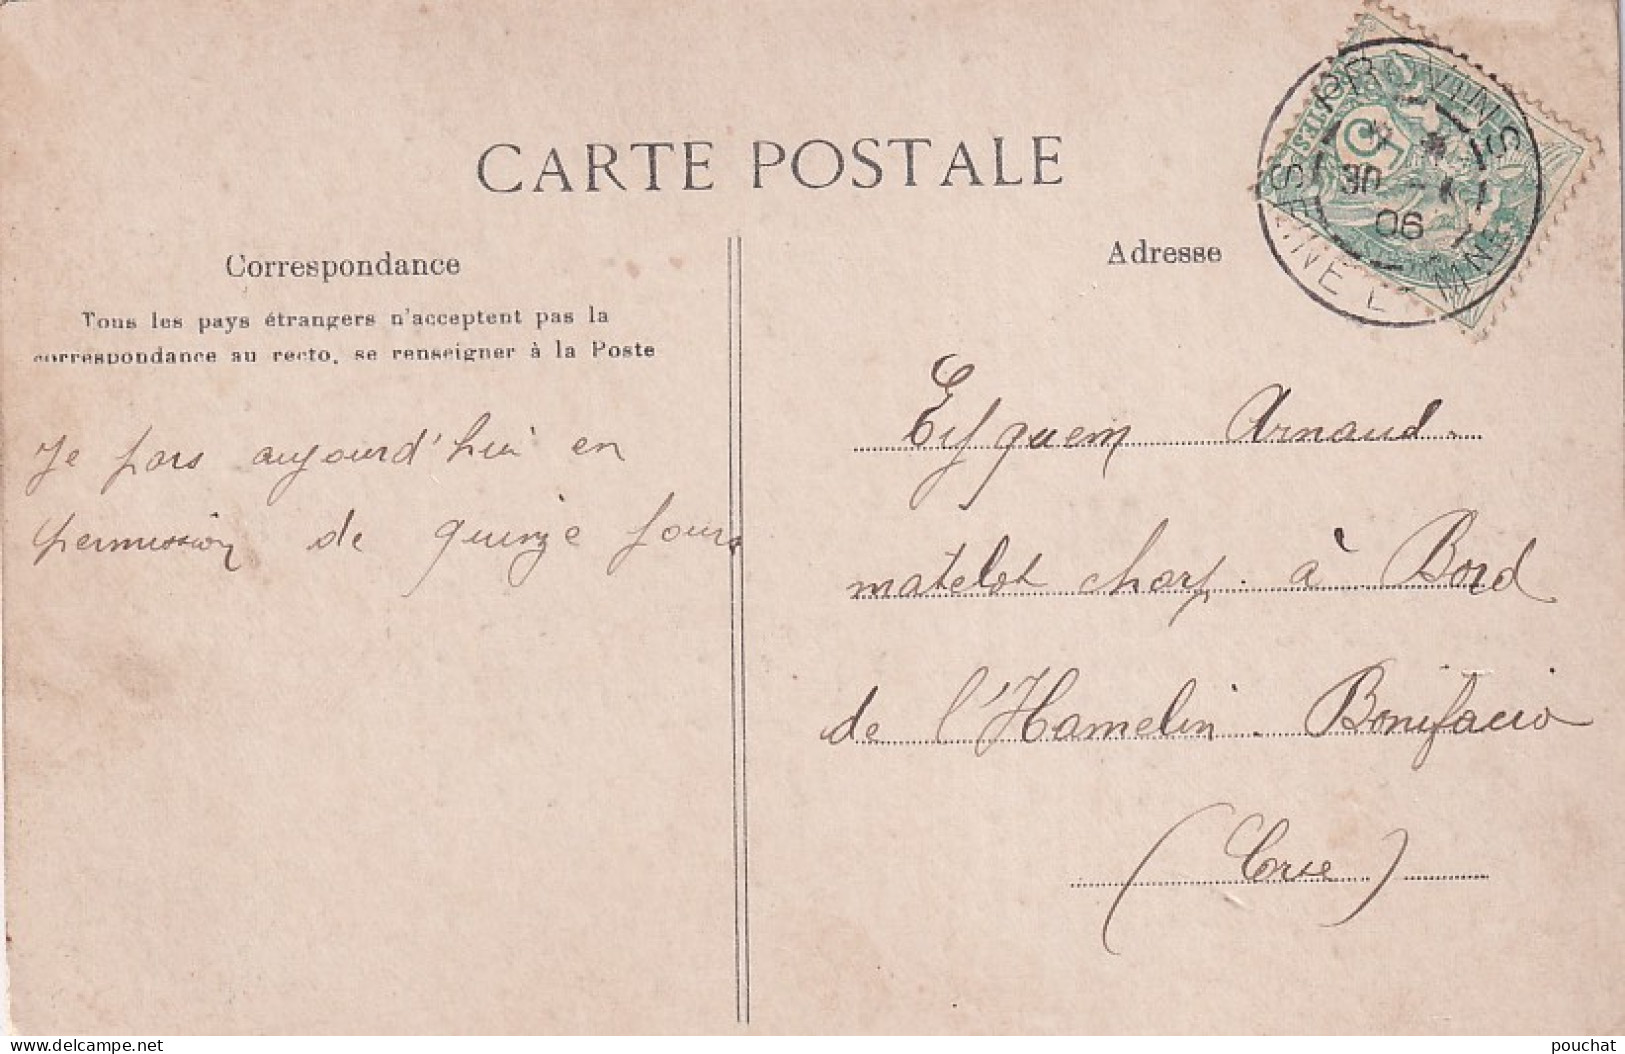 CARTE POSTALE
Correspondance
Tous les pays étrangers n'acceptent pas la
correspondance au recto, se renseigner à la Poste
Je pars aujourd'hui en
permission de quinze jours
Adresse
Eyquem Arnaud.
matelot charp. à Bord
de l'Hamelin. Bonifacio
(Corse)
PROVINS
30 -1
06
SEINE ET MNE
5
pouchat